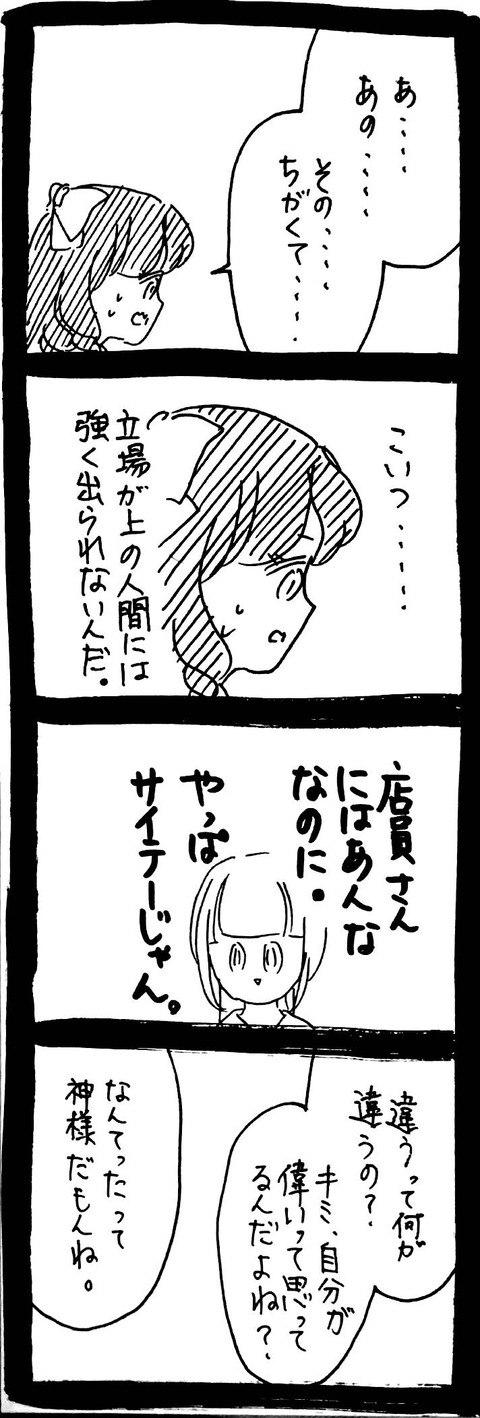 あ‥‥
あの‥‥
その‥‥
ちがくて‥‥.
こいつ‥‥‥
立場が上の人間には
強く出られないんだ。
店員さん
にはあんな
なのに。
やっぱ
サイテーじゃん。
違うって何が
違うの？
キミ、自分が
偉いって思って
るんだよね？
なんてったって
神様だもんね。